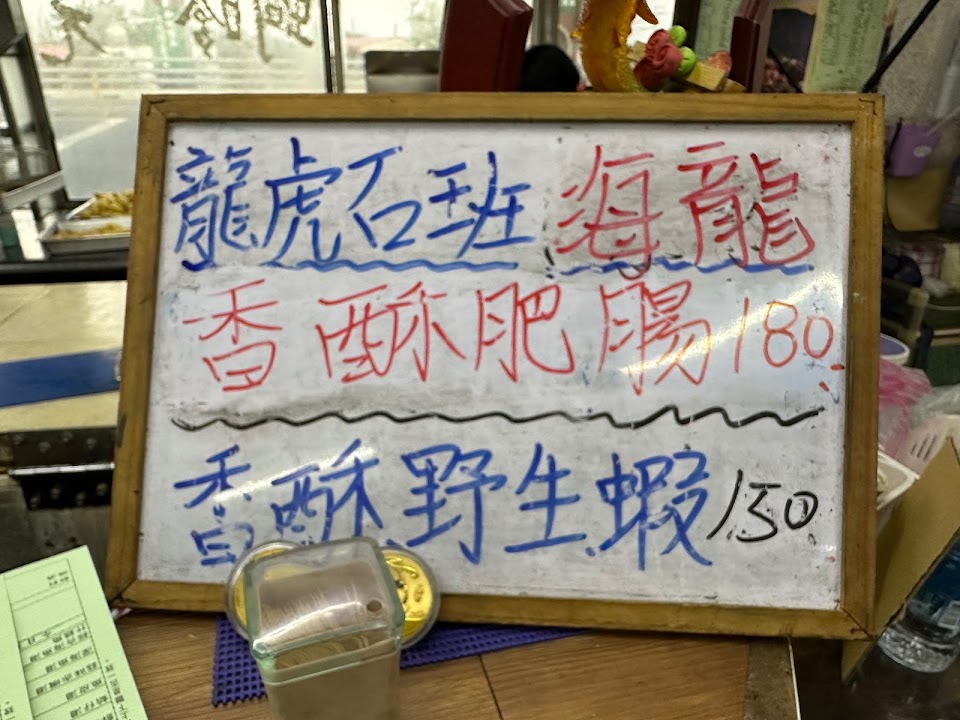 龍虎石班 海龍
香酥肥腸180
香酥野生蝦150